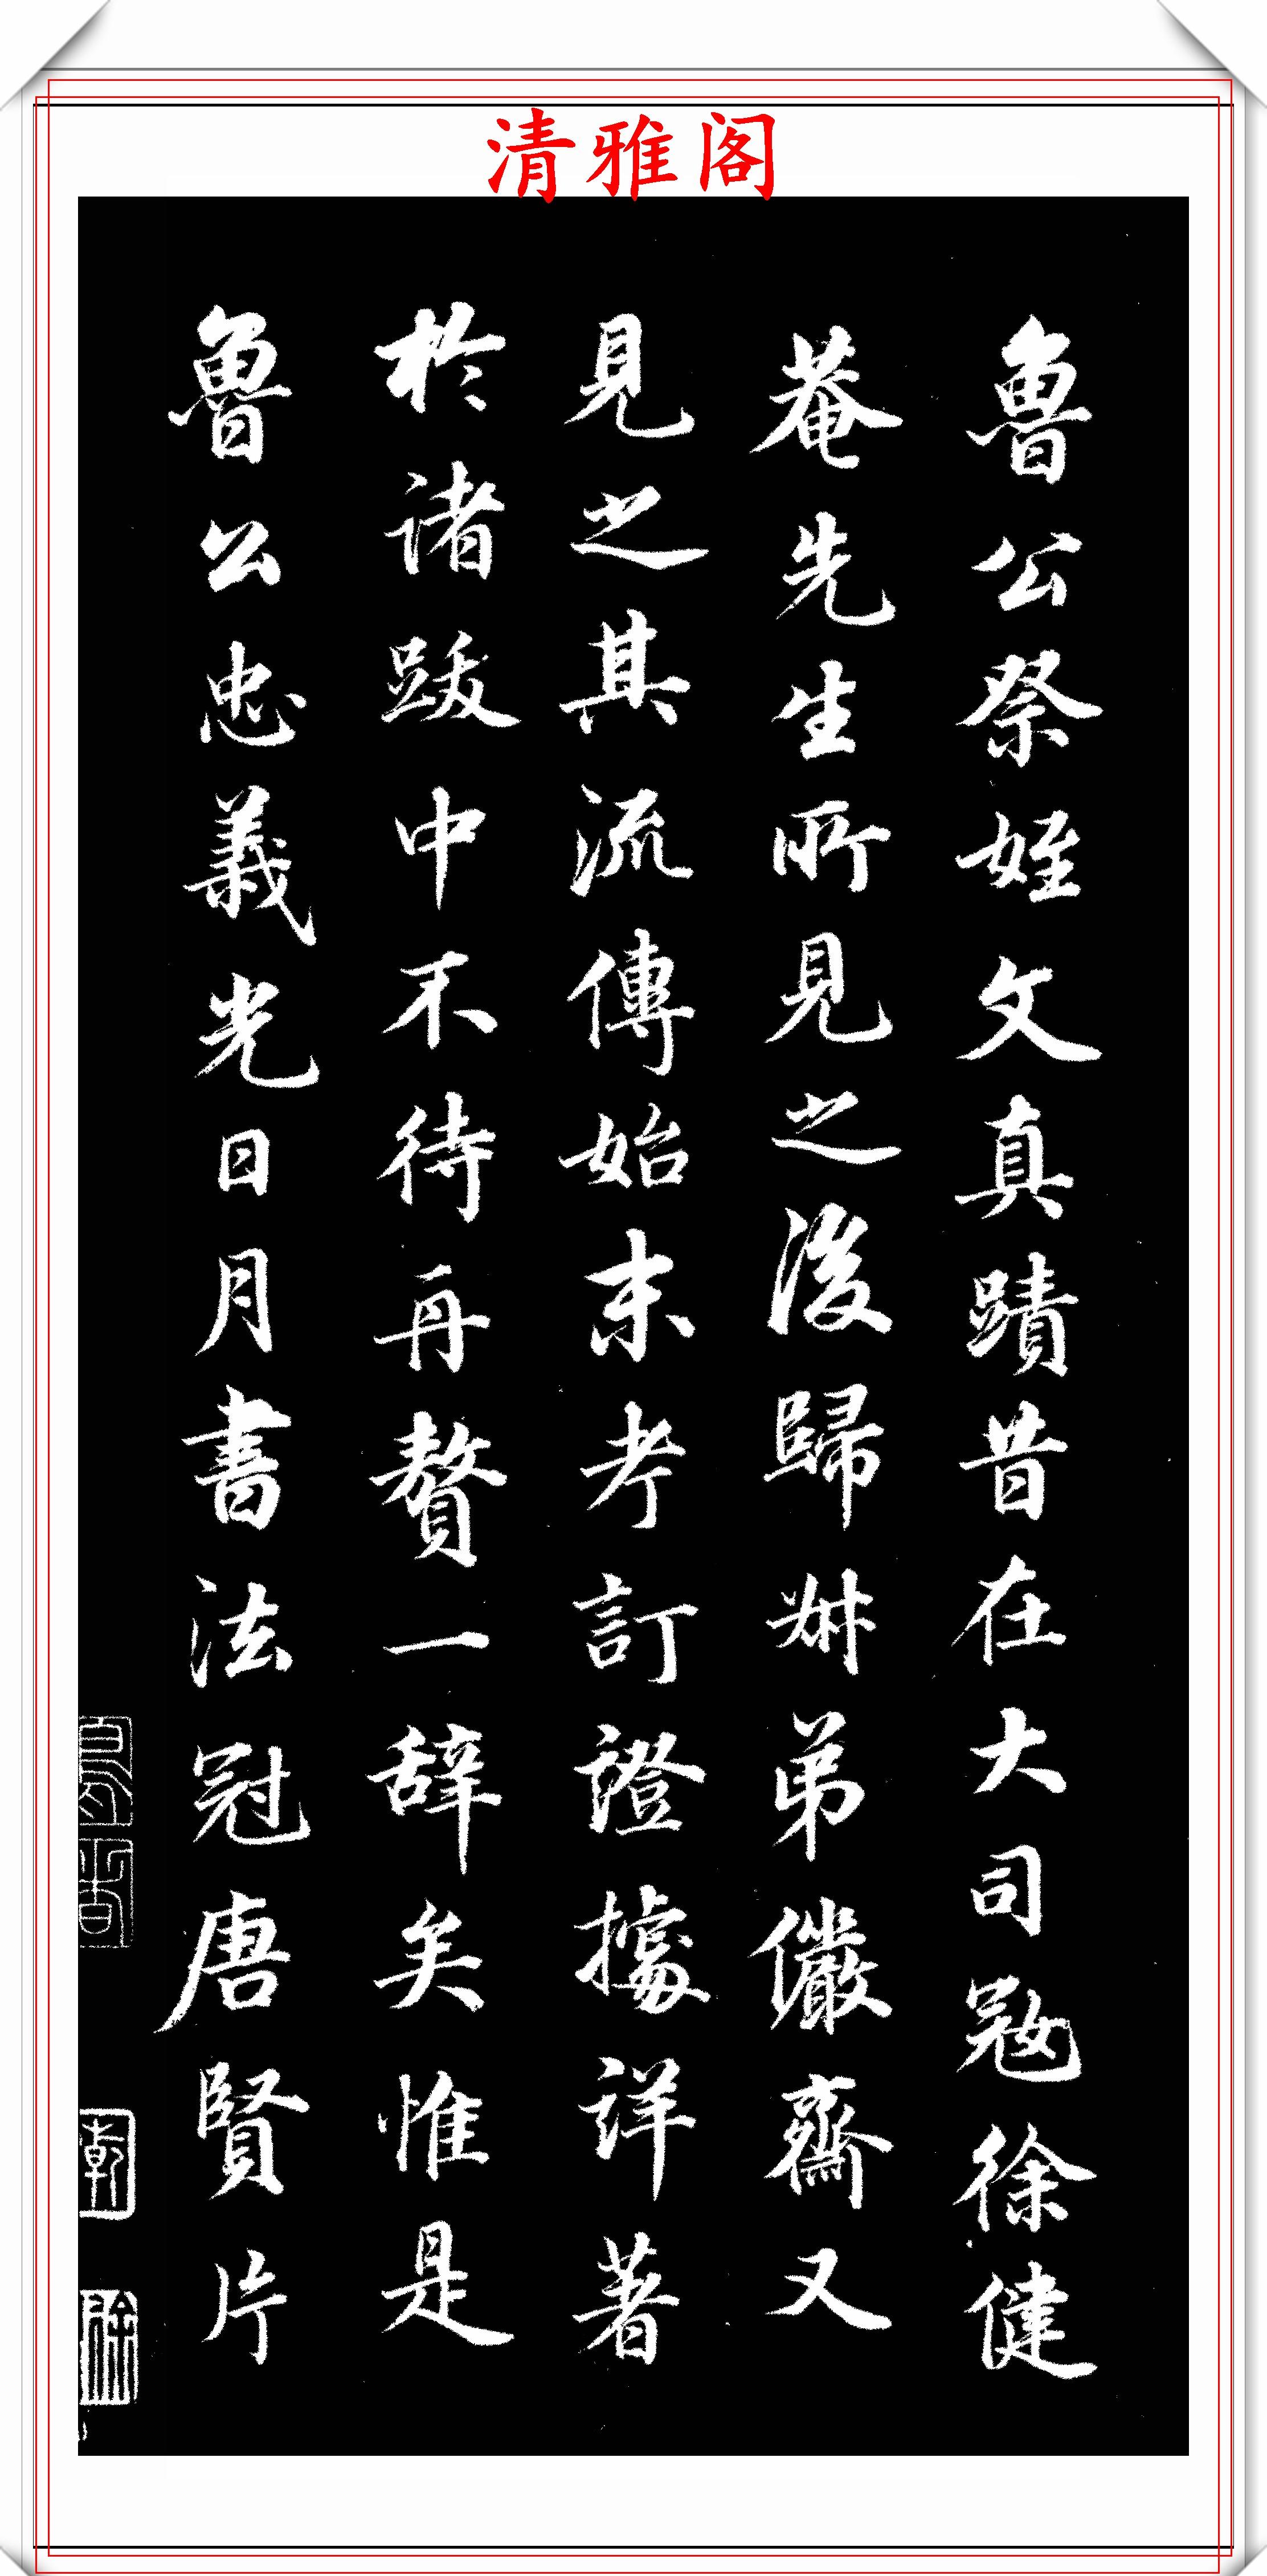 清雅阁
魯公祭姪文真蹟昔在大司寇徐健
菴先生所見之後歸淋弟儼齋又
見之其流傳始末考訂證據詳著
於诸跋中不待再贅一辞矣惟是
魯公忠義光日月書法冠唐賢片